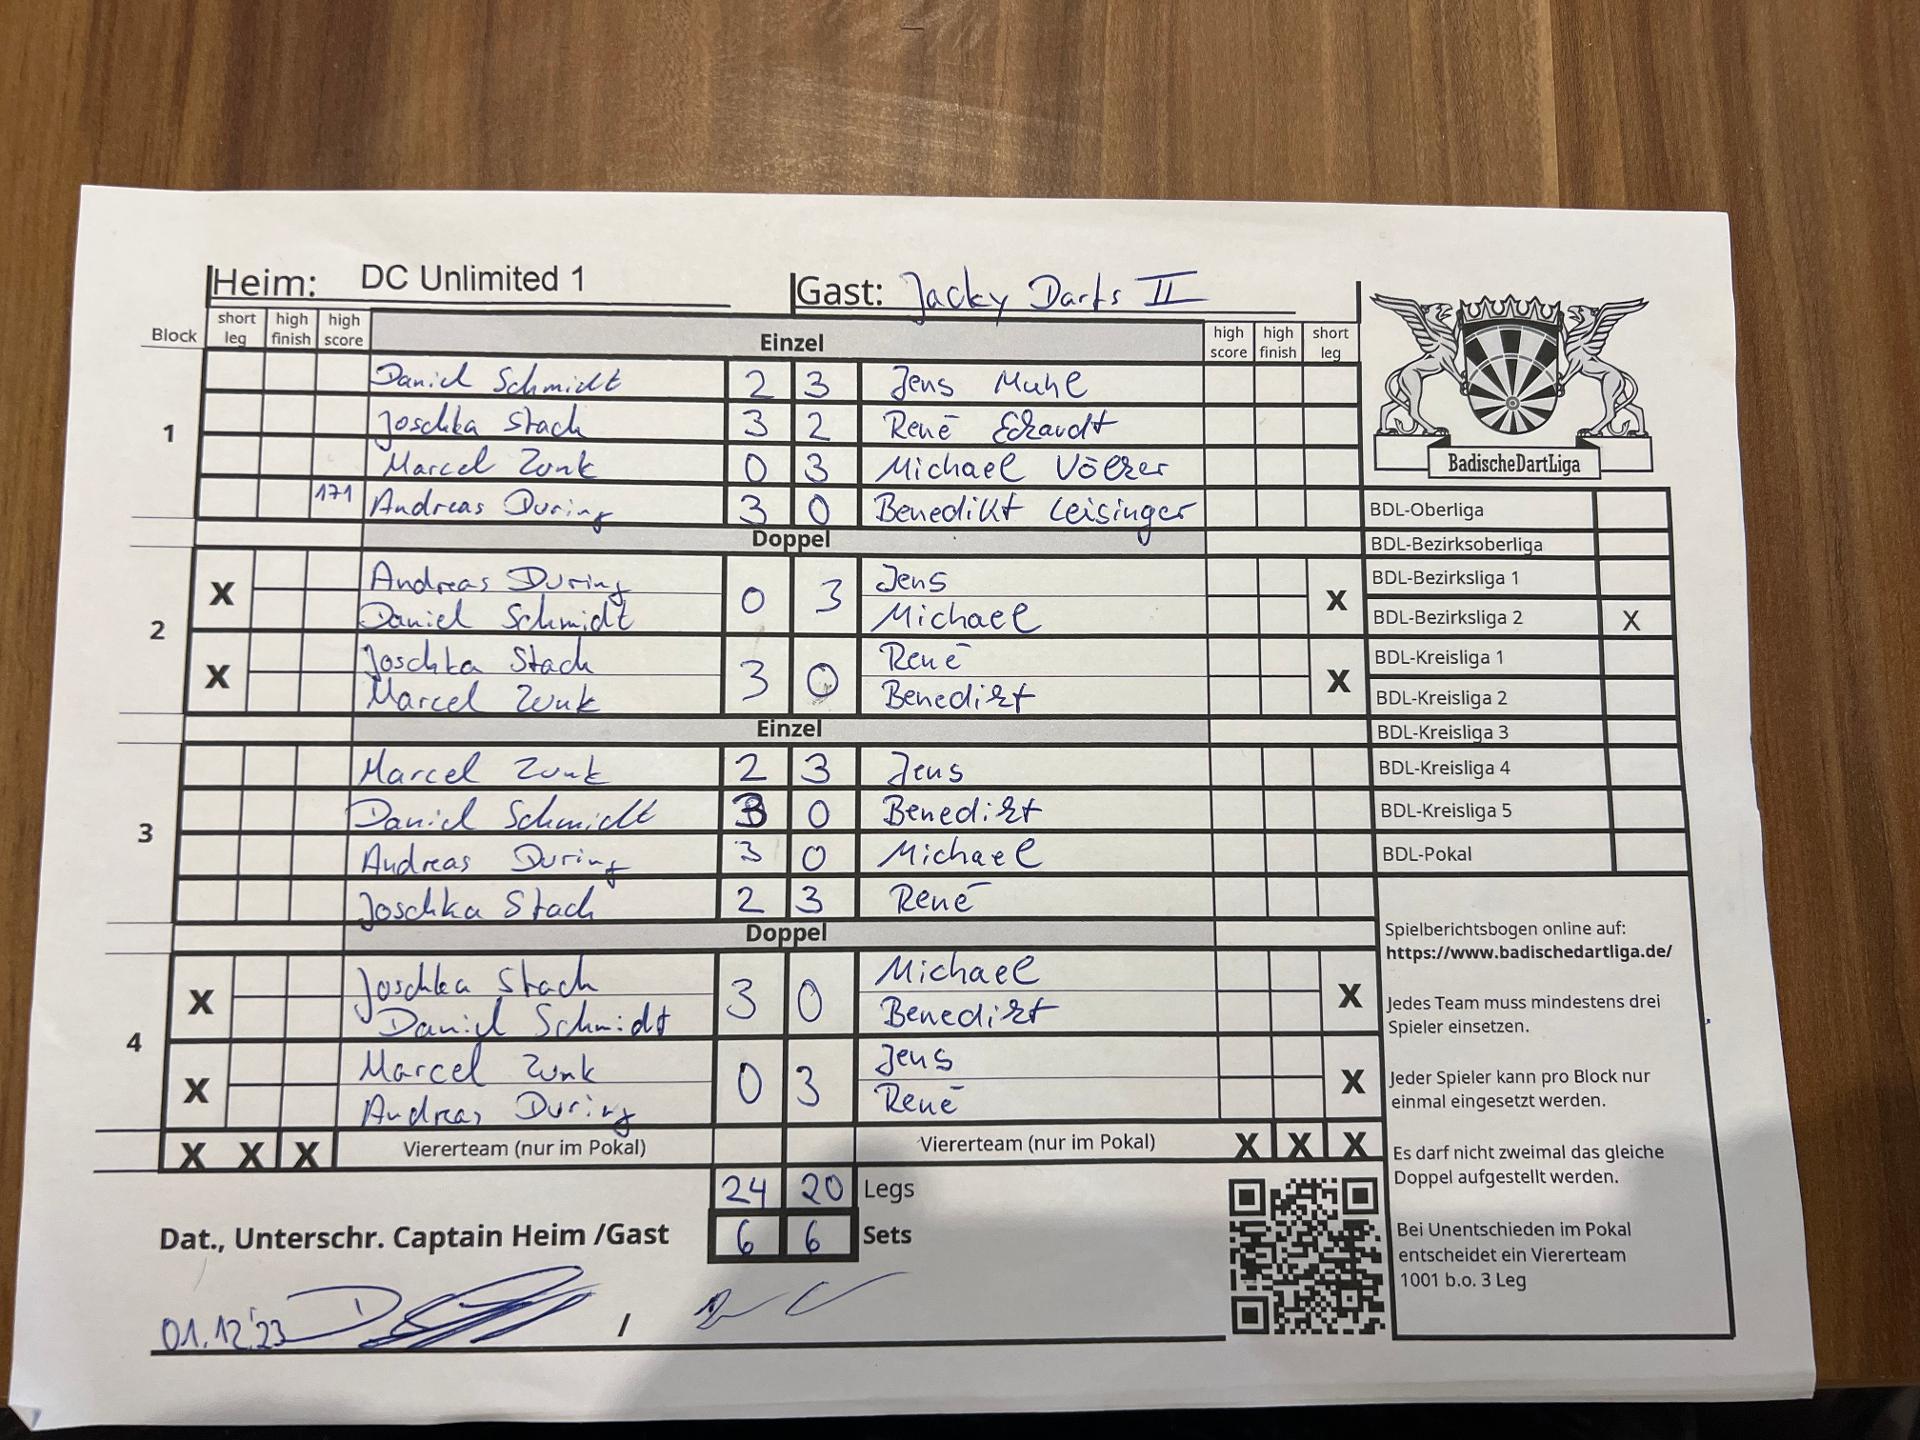 Heim: DC Unlimited 1 Gast: Jacky Darts II
Block short leg high finish high score Einzel high score high finish short leg
1
Daniel Schmidt 2 3 Jens Muhl
Joschka Stach 3 2 René Eckardt
Marcel Zunk 0 3 Michael Völker
171 Andreas During 3 0 Benedikt Leisinger
Doppel
2
X Andreas During 0 3 Jens X
Daniel Schmidt Michael
X Joschka Stach 3 0 René X
Marcel Zunk Benedikt
Einzel
3
Marcel Zunk 2 3 Jens
Daniel Schmidt 3 0 Benedikt
Andreas During 3 0 Michael
Joschka Stach 2 3 René
Doppel
4
X Joschka Stach 3 0 Michael X
Daniel Schmidt Benedikt
X Marcel Zunk 0 3 Jens X
Andreas During René
X X X Vierерteam (nur im Pokal) Viererteam (nur im Pokal) X X X
24 20 Legs
6 6 Sets
Dat., Unterschr. Captain Heim /Gast
01.12.23 /
BadischeDartLiga
BDL-Oberliga
BDL-Bezirksoberliga
BDL-Bezirksliga 1
BDL-Bezirksliga 2 X
BDL-Kreisliga 1
BDL-Kreisliga 2
BDL-Kreisliga 3
BDL-Kreisliga 4
BDL-Kreisliga 5
BDL-Pokal
Spielberichtsbogen online auf:
https://www.badischedartliga.de/
Jedes Team muss mindestens drei
Spieler einsetzen.
Jeder Spieler kann pro Block nur
einmal eingesetzt werden.
Es darf nicht zweimal das gleiche
Doppel aufgestellt werden.
Bei Unentschieden im Pokal
entscheidet ein Viererteam
1001 b.o. 3 Leg